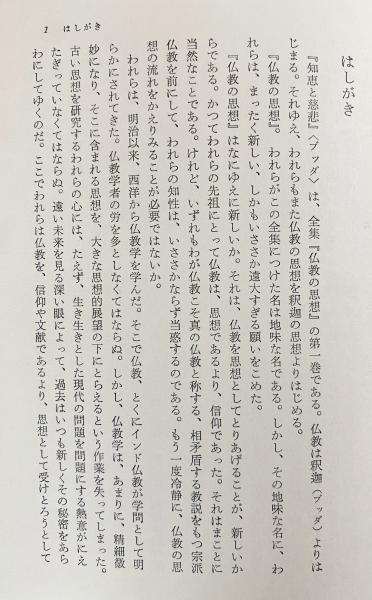 1 はしがき
はしがき
『知恵と慈悲』〈ブッダ〉は、全集『仏教の思想』の第一巻である。仏教は釈迦〈ブッダ〉よりは
じまる。それゆえ、われらもまた仏教の思想を釈迦の思想よりはじめる。
『仏教の思想』。われらがこの全集につけた名は地味な名である。しかし、その地味な名に、わ
れらは、まったく新しい、しかもいささか遠大すぎる願いをこめた。
『仏教の思想』はなにゆえに新しいか。それは、仏教を思想としてとりあげることが、新しいか
らである。かつてわれらの先祖にとって仏教は、思想であるより、信仰であった。それはまことに
当然なことである。けれど、いずれもわが仏教こそ真の仏教と称する、相矛盾する教説をもつ宗派
仏教を前にして、われらの知性は、いささかならず当惑するのである。もう一度冷静に、仏教の思
想の流れをかえりみることが必要ではないか。
われらは、明治以来、西洋から仏教学を学んだ。そこで仏教 とくにインド仏教が学問として明
らかにされてきた。仏教学者の労を多としなくてはならぬ。しかし、仏教学は、あまりに、精細微
妙になり、そこに含まれる思想を、大きな思想的展望の下にとらえるという作業を失ってしまった。
古い思想を研究するわれらの心には、たえず、生き生きとした現代の問題を問題にする熱意がにえ
たぎっていなくてはならぬ。遠い未来を見る深い眼によって、過去はいつも新しくその秘密をあら
わにしてゆくのだ。ここでわれらは仏教を、信仰や文献であるより、思想として受けとろうとして